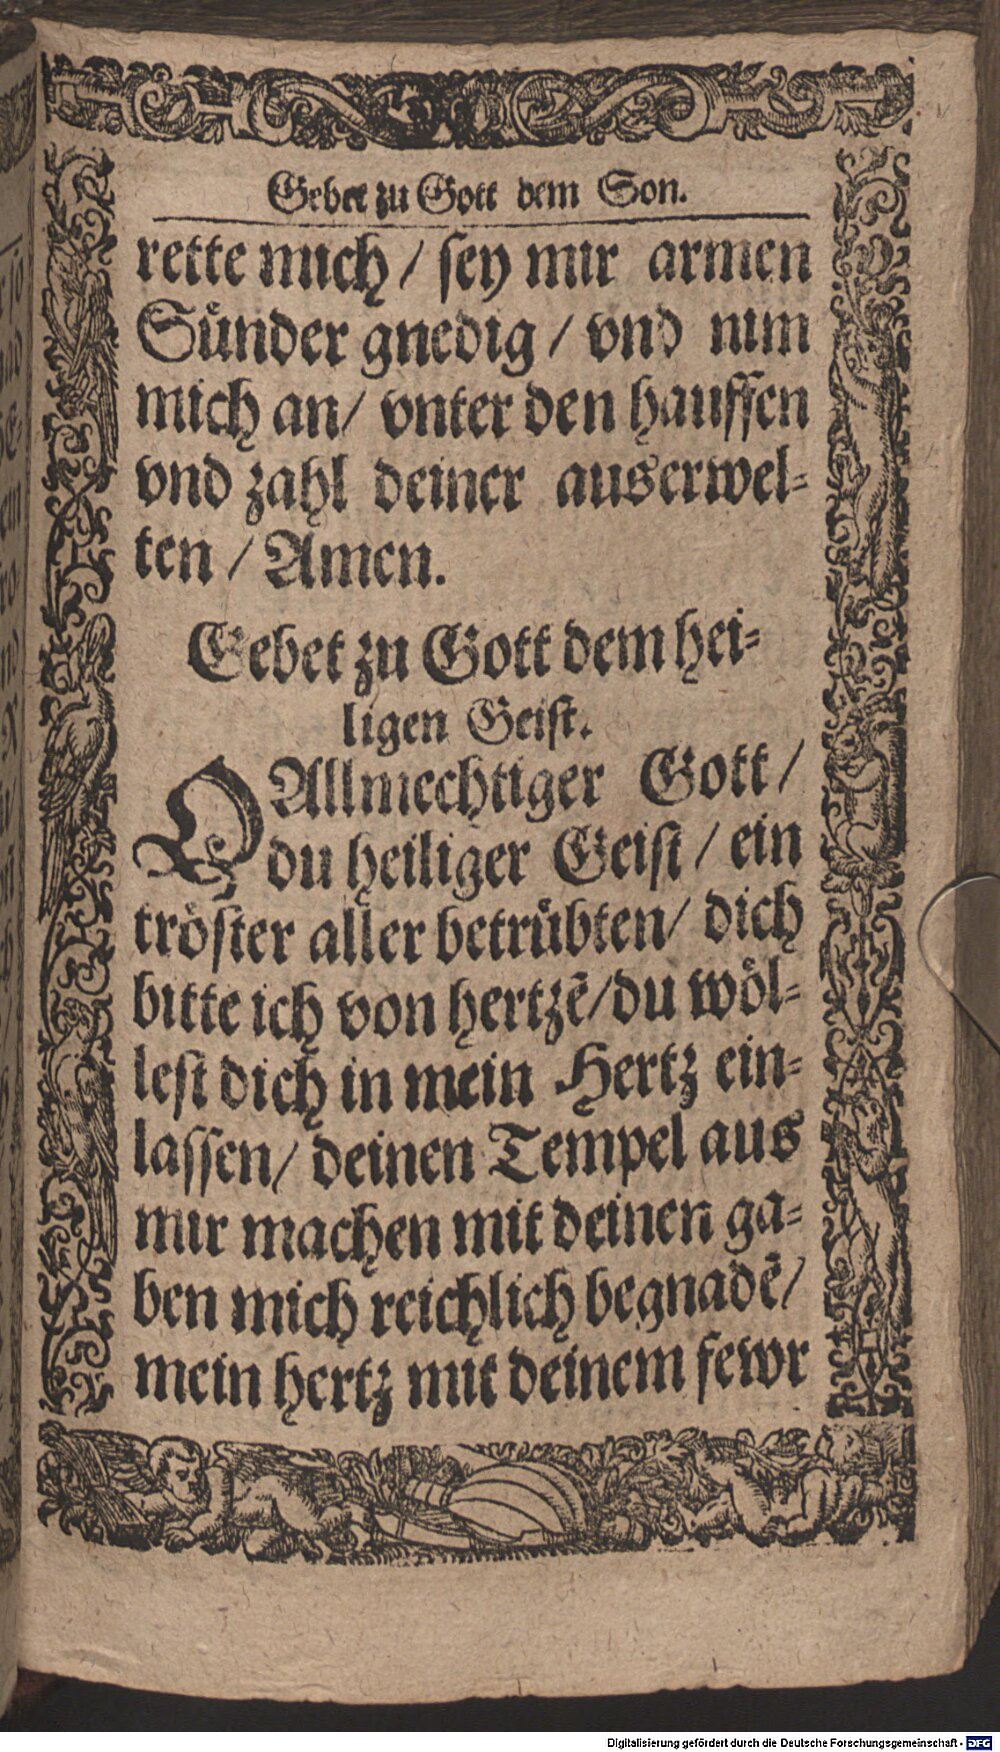 Gebet zu Gott dem Son.
rette mich / sey mir armen
Sünder gnedig / vnd nim
mich an / vnter den hauffen
vnd zahl deiner auserwel-
ten / Amen.
Gebet zu Gott dem hei-
ligen Geist.
O Allmechtiger Gott /
du heiliger Geist / ein
tröster aller betrübten / dich
bitte ich von hertzẽ / du wöl-
lest dich in mein Hertz ein-
lassen / deinen Tempel aus
mir machen mit deinen ga-
ben mich reichlich begnadẽ /
mein hertz mit deinem fewr
Digitalisierung gefördert durch die Deutsche Forschungsgemeinschaft - DFG